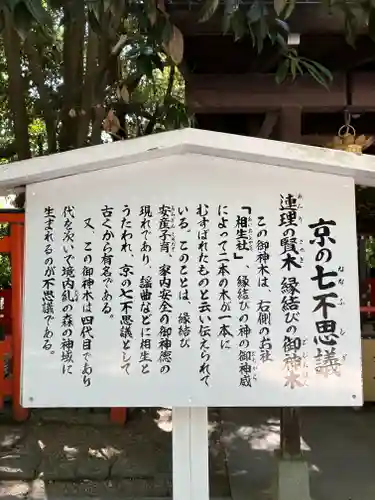 京の七不思議
ななふしぎ
連理の賢木 縁結びの御神木
れんり
さかき
ごしんぼく
この御神木は、右側のお社
「相生社」、縁結びの神の御神威
あいおいしゃ
によって二本の木が一本に
むすばれたものと云い伝えられて
いる。このことは、縁結び
安産子育、家内安全の御神徳の
現れであり、謡曲などに相生と
うたわれ、京の七不思議として
古くから有名である。
又、この御神木は四代目であり
代を次いで境内糺の森の神域に
生まれるのが不思議である。